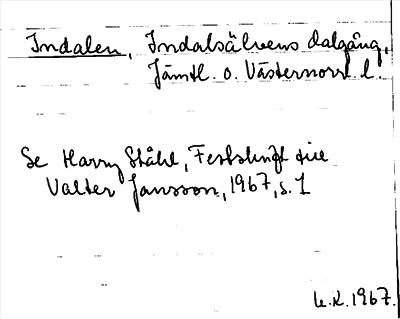 Indalen, Indalsälvens dalgång,
Jämtl. o. Västernorrl. l.
Se Harry Ståhl, Festskrift till
Valter Jansson, 1967, s. 1
1967.